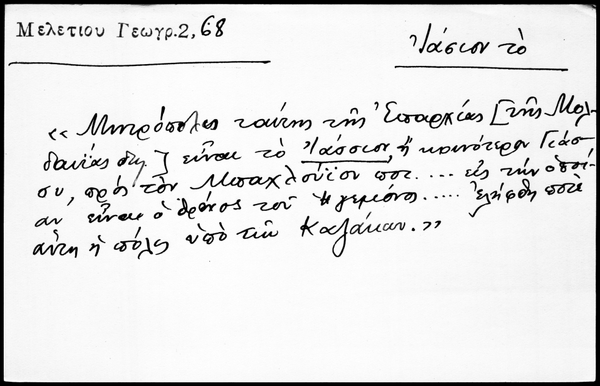 Μελετίου Γεωγρ. 2, 68
Ἰάσιον τὸ
« Μητρόπολις ταύτης τῆς Ἐπαρχίας [τῆς Μολ-
δαυίας δηλ.] εἶναι τὸ Ἰάσσιον, ἢ κοινότερον Γιάσ-
σι, πρὸς τὸν Μπαχλούϊον ποτ. .... εἰς τὴν ὁποί-
αν εἶναι ὁ θρόνος τοῦ Ἡγεμόνος ..... ἐλήφθη ποτὲ
αὕτη ἡ πόλις ὑπὸ τῶν Καζάκων. »